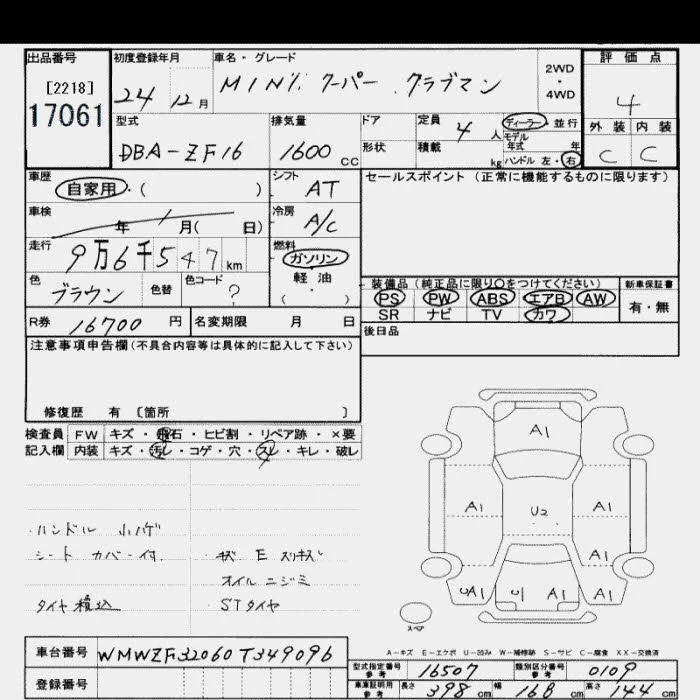 出品番号 初度登録年月 車名・グレード 評価点
[2218] 24 12月 MINI クーパー クラブマン 2WD・4WD 4
17061
型式 排気量 ドア 定員 ディーラー・並行 外装 内装
DBA-ZF16 1600cc 形状 積載 4人 kg モデル年式 年 ハンドル 左・右 C C
車歴 自家用・( ) シフト AT セールスポイント(正常に機能するものに限ります)
車検 年 月( 日) 冷房 A/C
走行 9万6千547km 燃料 ガソリン
軽油
・( )
色 ブラウン 色替 色コード ?
装備品(純正品に限り○をつけてください) 新車保証書
PS PW ABS エアB AW 有・無
SR ナビ TV カワ
R券 16700円 名変期限 月 日 後日品
注意事項申告欄(不具合内容等は具体的に記入して下さい)
修復歴 有 〔箇所 〕
検査員 FW キズ・飛石・ヒビ割・リペア跡・×要
記入欄 内装 キズ・汚レ・コゲ・穴・スレ・キレ・破レ
A1
A1 U2 A1
A1
UA1 U1 A1 A1
ハンドル 小ハゲ
シート カバー付 キズ E スリキズ
オイルニジミ
タイヤ積込 STタイヤ
スペア
A-キズ E-エクボ U-凹み W-補修跡 S-サビ C-腐食 XX-交換済
車台番号 WMWZF32060T349096
登録番号
型式指定番号 参考 16507 類別区分番号 参考 0109
車庫証明用 参考 長さ 398cm 幅 168cm 高さ 144cm